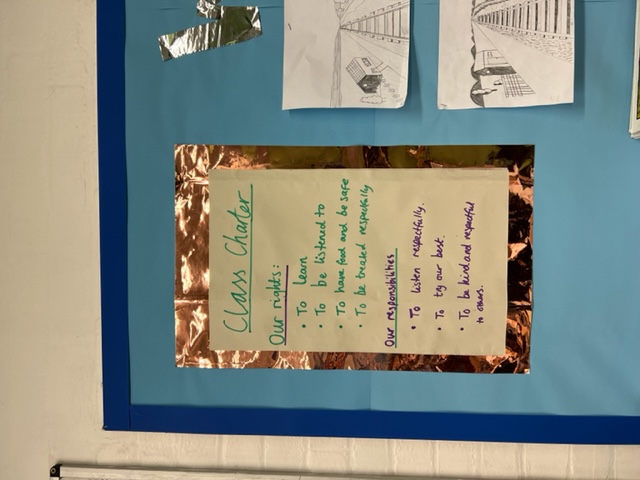 Class Charter
Our rights:
• To learn
• To be listened to
• To have food and be safe
• To be treated respectfully
Our responsibilities
• To listen respectfully.
• To try our best.
• To be kind and respectful
to others.